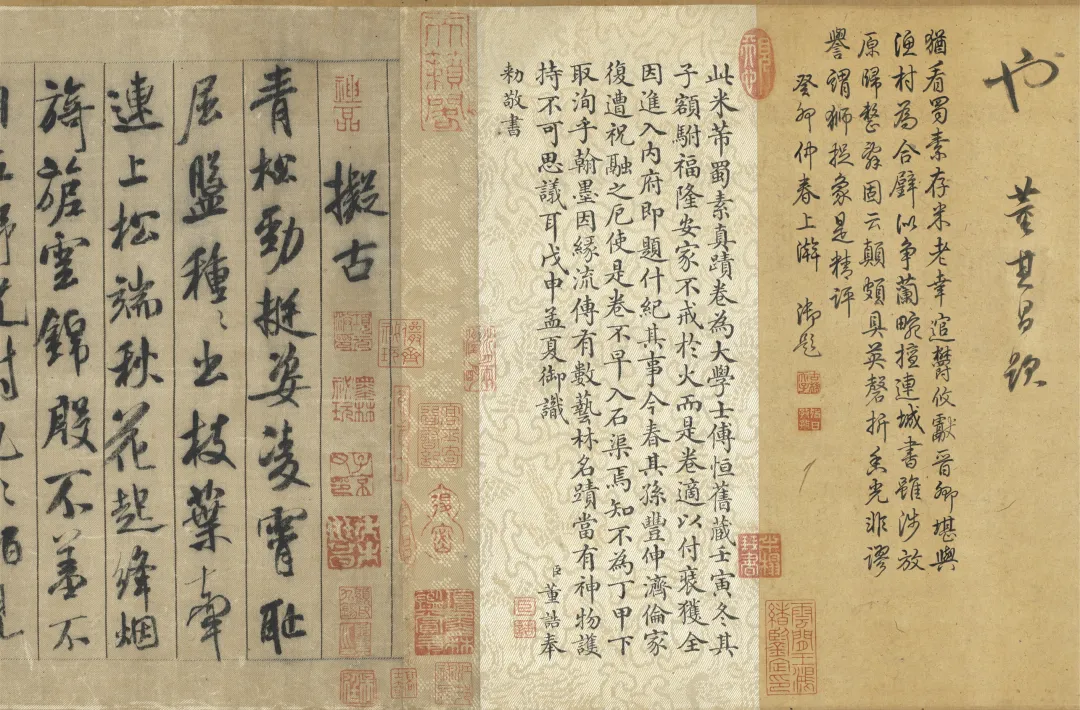 也
董其昌題
猶看蜀素存米老幸逭欝攸獻晉卿堪與
漁村為合璧以爭蘭畹擅連城書雖涉放
原歸整固云顛頗具英磬折香光非謬
譽謂獅捉象是精評
癸卯仲春上澣 御題
此米芾蜀素真蹟卷為大學士傅恒舊藏壬寅冬其
子額駙福隆安家不戒於火而是卷適以付裝獲全
因進入內府即題什紀其事今春其孫豐伸濟倫家
復遭祝融之厄使是卷不早入石渠焉知不為丁甲下
取洵乎翰墨因緣流傳有數藝林名蹟當有神物護
持不可思議耳戊申孟夏御識 臣董誥奉
勅敬書
擬古
青松勁挺姿凌霄恥
屈盤種〻出枝葉牽
連上松端秋花起絳烟
旖旎雲錦殷不羞不